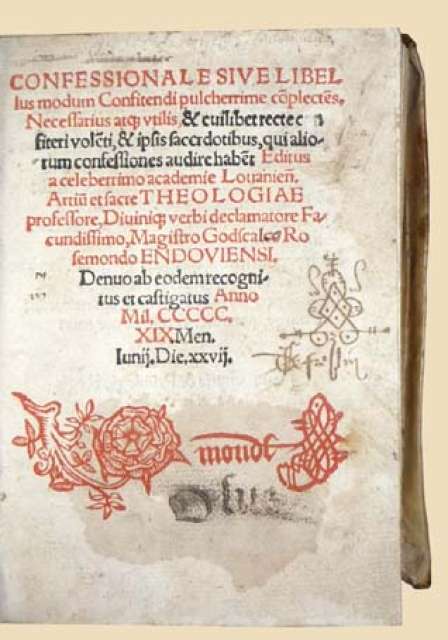 CONFESSIONALE SIVE LIBEL
lus modum Confitendi pulcherrime cōplectēs,
Necessarius atq; vtilis, & cuilibet recte
fiteri volēti, & ipsis sacerdotibus, qui alio⸗
rum confessiones audire habēt Editus
a celeberrimo academie Louanieñ.
Artiū et sacre THEOLOGIAE
professore, Diuiniq; verbi declamatore Fa⸗
cundissimo, Magistro Godscalco Ro
semondo ENDOVIENSI.
Denuo ab eodem recogni⸗
tus et castigatus Anno
Mil. CCCCC.
XIX. Men.
Iunij. Die. xxvij.
monde